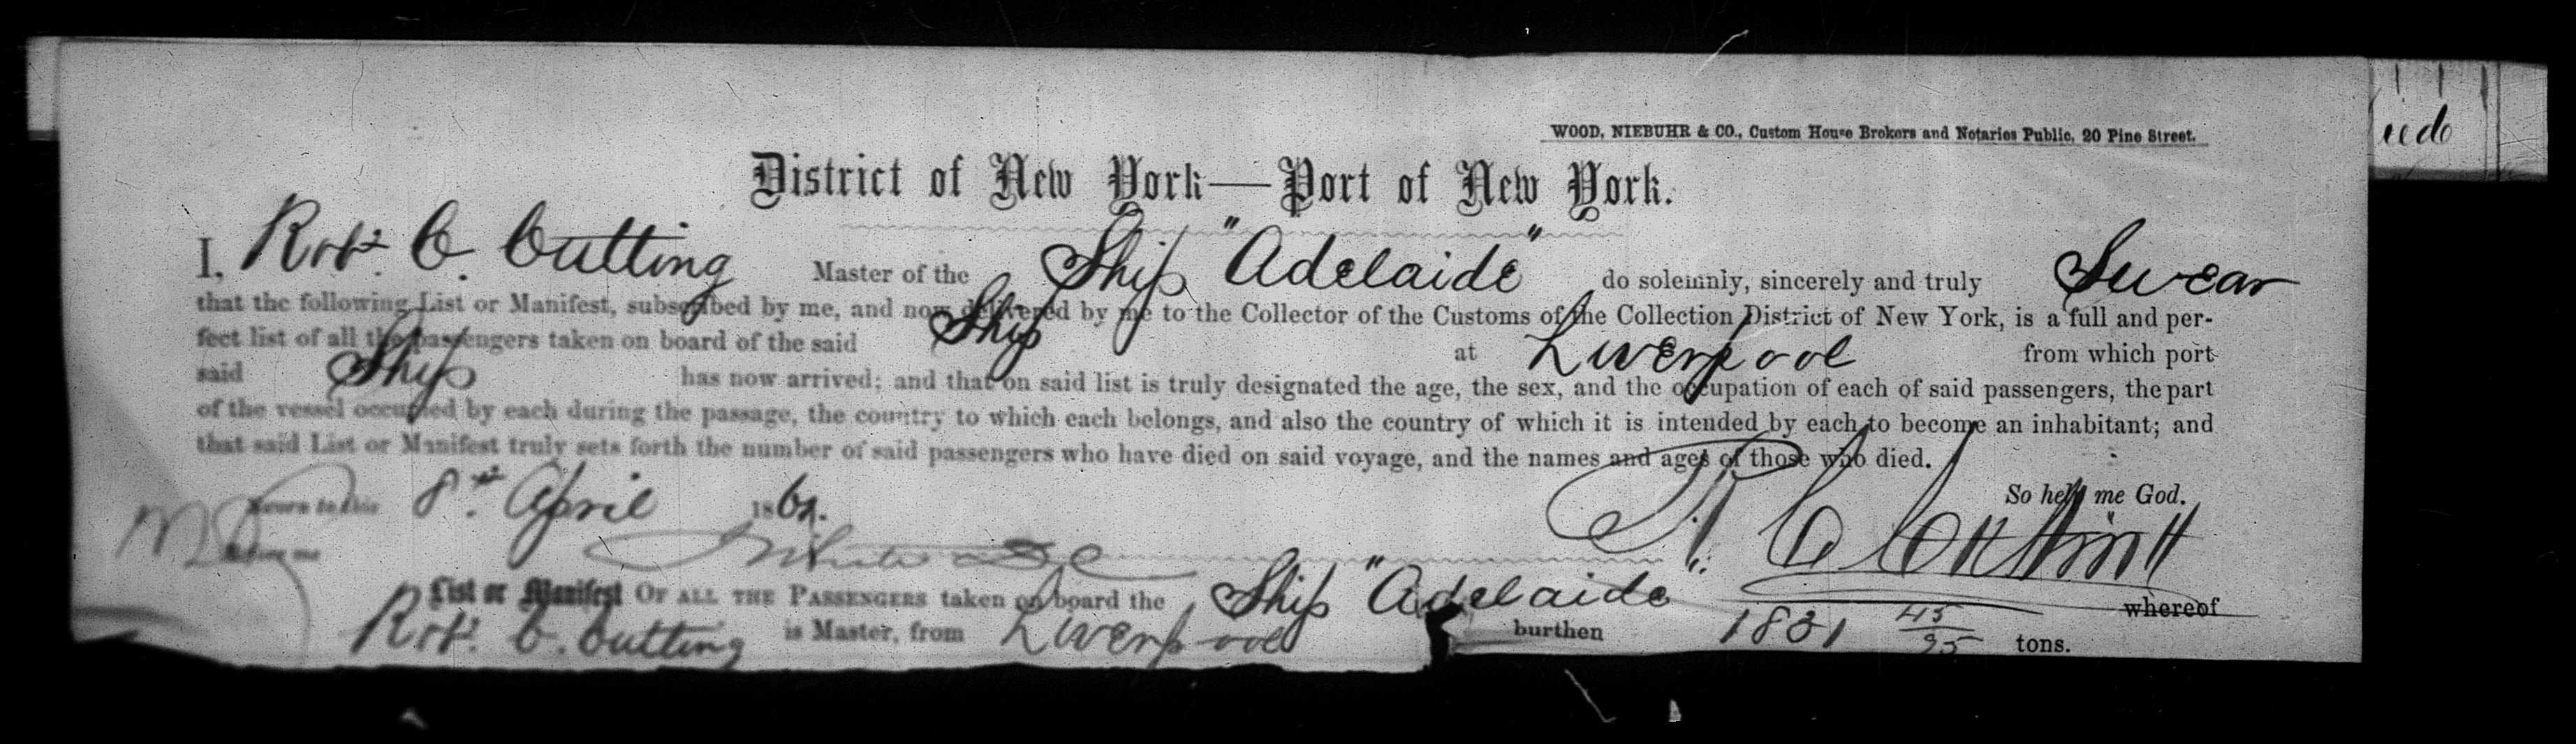 WOOD, NIEBUHR & CO., Custom House Brokers and Notaries Public, 20 Pine Street.
udo
District of New York—Port of New York.
I, Robt. C. Cutting Master of the Ship "Adelaide" do solemnly, sincerely and truly Swear
that the following List or Manifest, subscribed by me, and now delivered by me to the Collector of the Customs of the Collection District of New York, is a full and per-
fect list of all the passengers taken on board of the said Ship at Liverpool from which port
said Ship has now arrived; and that on said list is truly designated the age, the sex, and the occupation of each of said passengers, the part
of the vessel occupied by each during the passage, the country to which each belongs, and also the country of which it is intended by each to become an inhabitant; and
that said List or Manifest truly sets forth the number of said passengers who have died on said voyage, and the names and ages of those who died.
Sworn to this 8th April 186 So help me God.
Before me R. C. Cutting
List or Manifest OF ALL THE PASSENGERS taken on board the Ship "Adelaide" whereof
Robt. C. Cutting is Master, from Liverpool burthen 1831 45/95 tons.